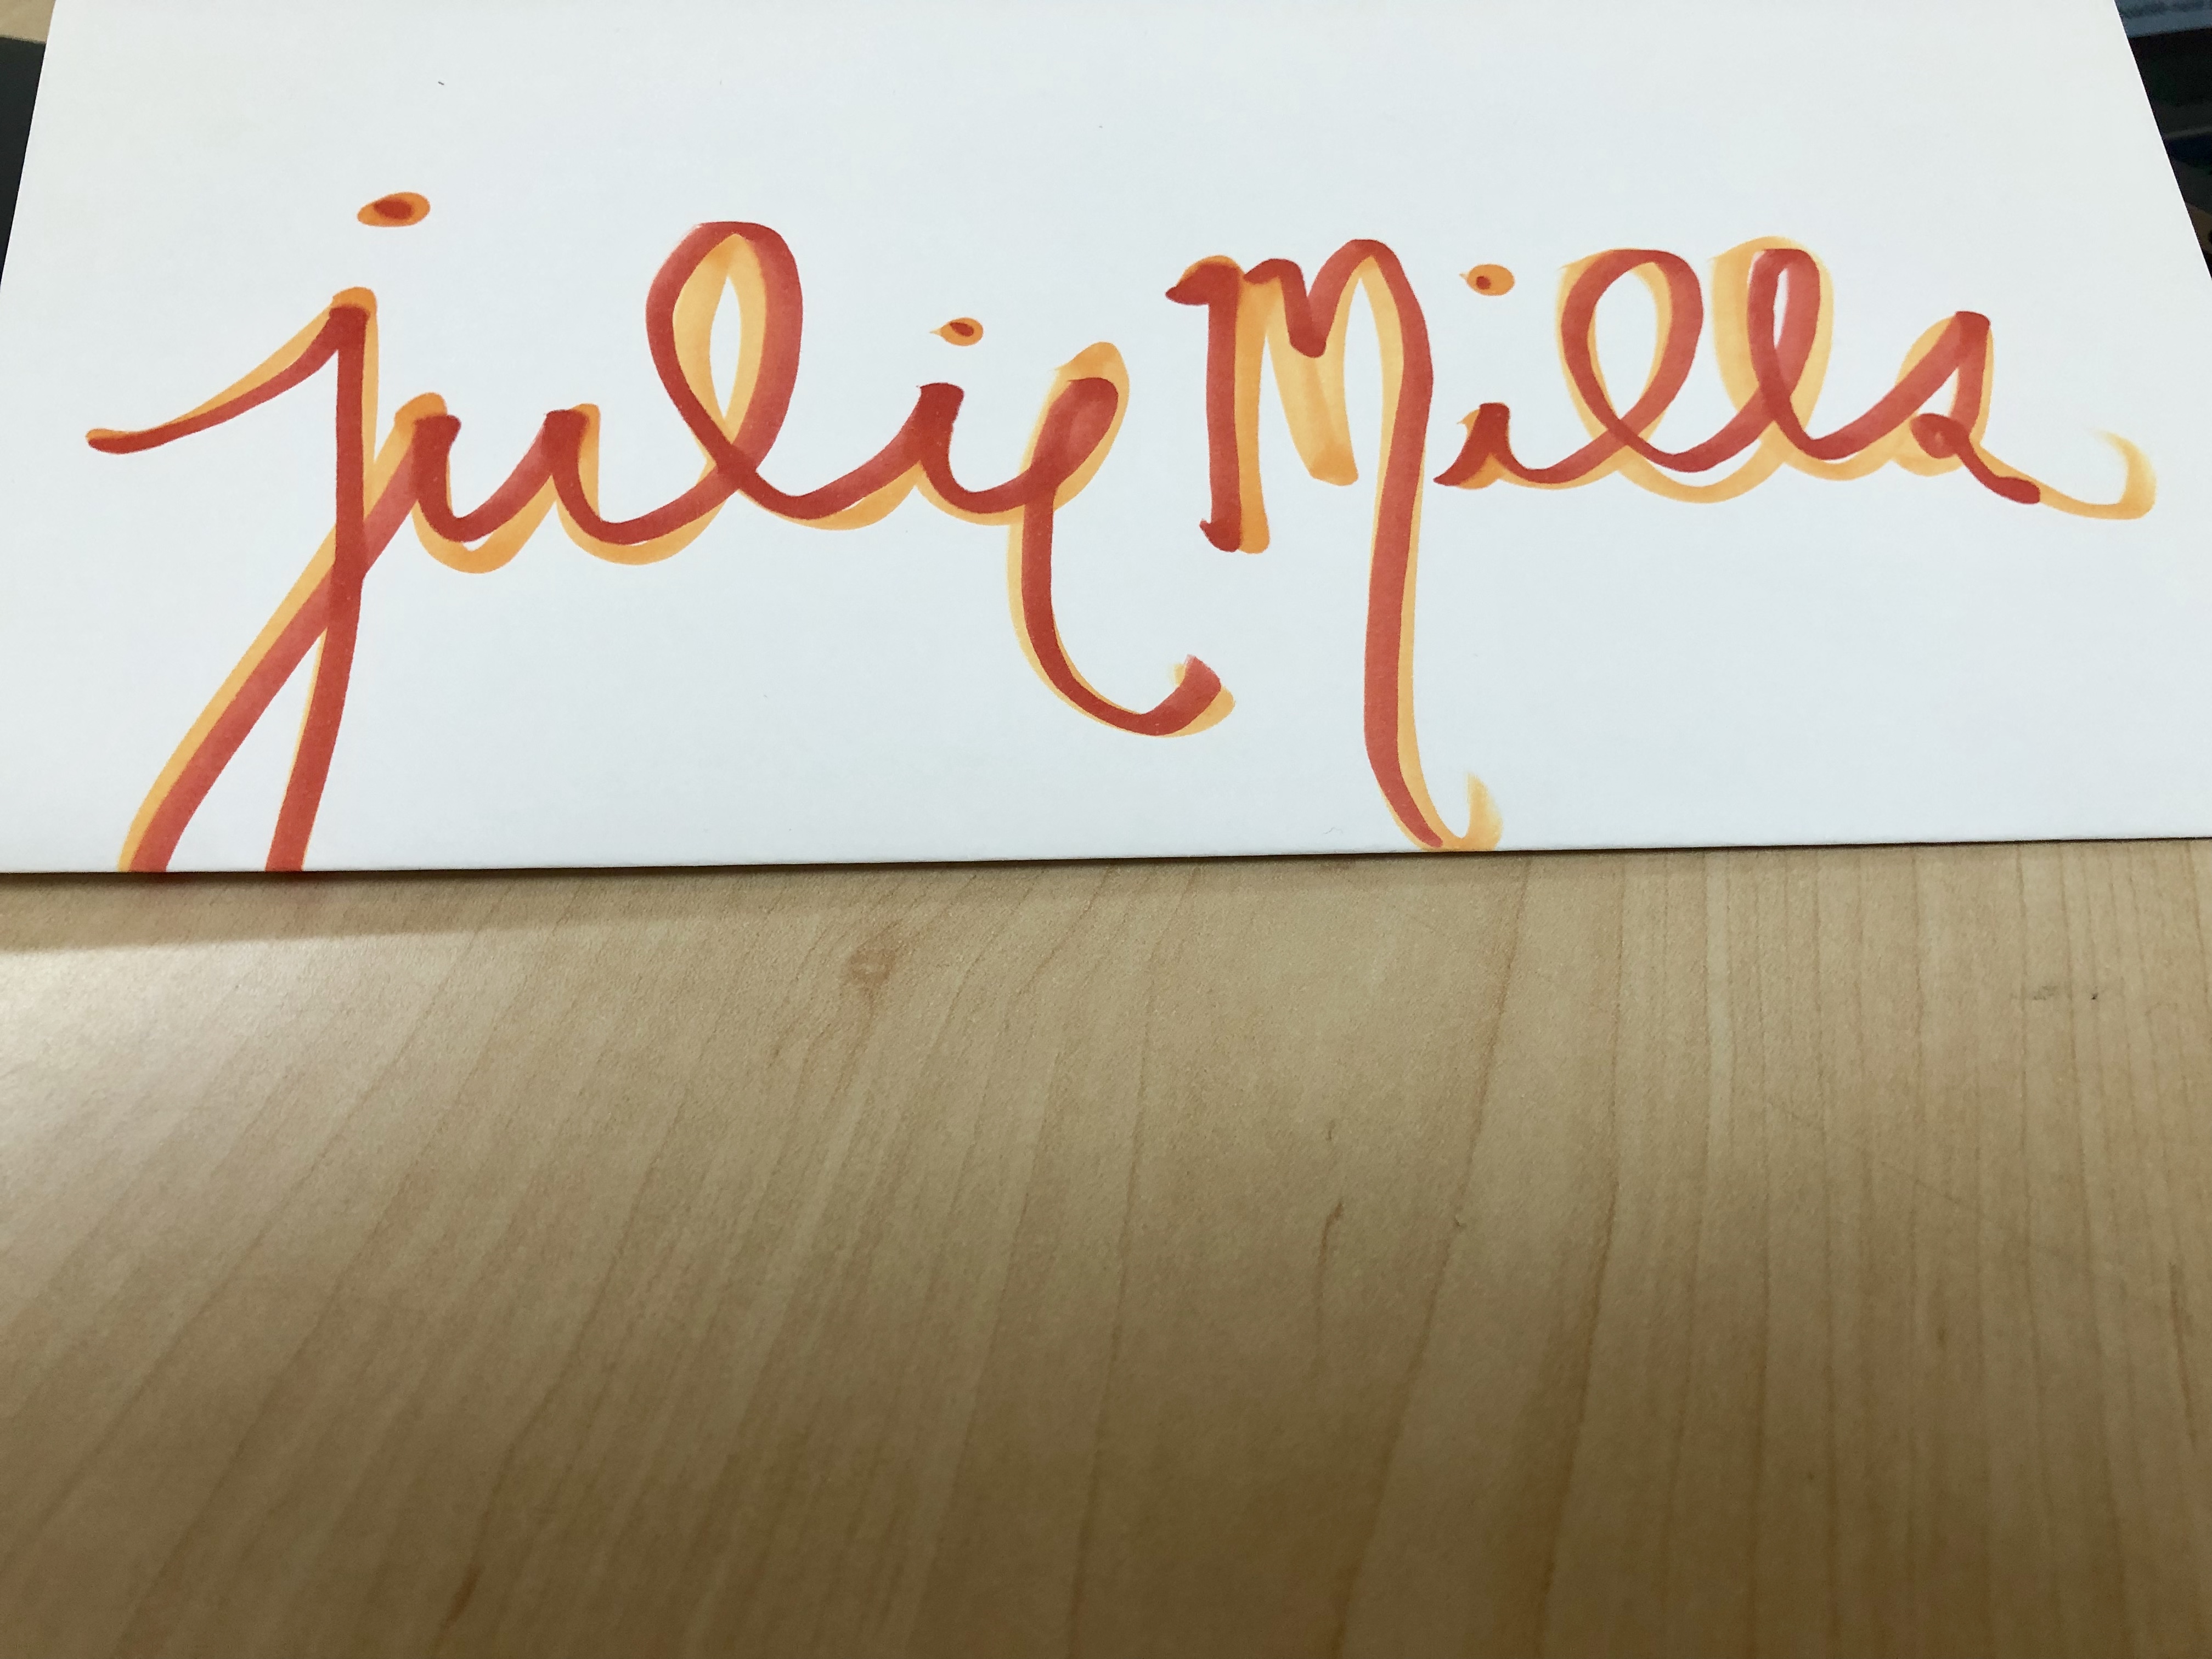 julie Mills